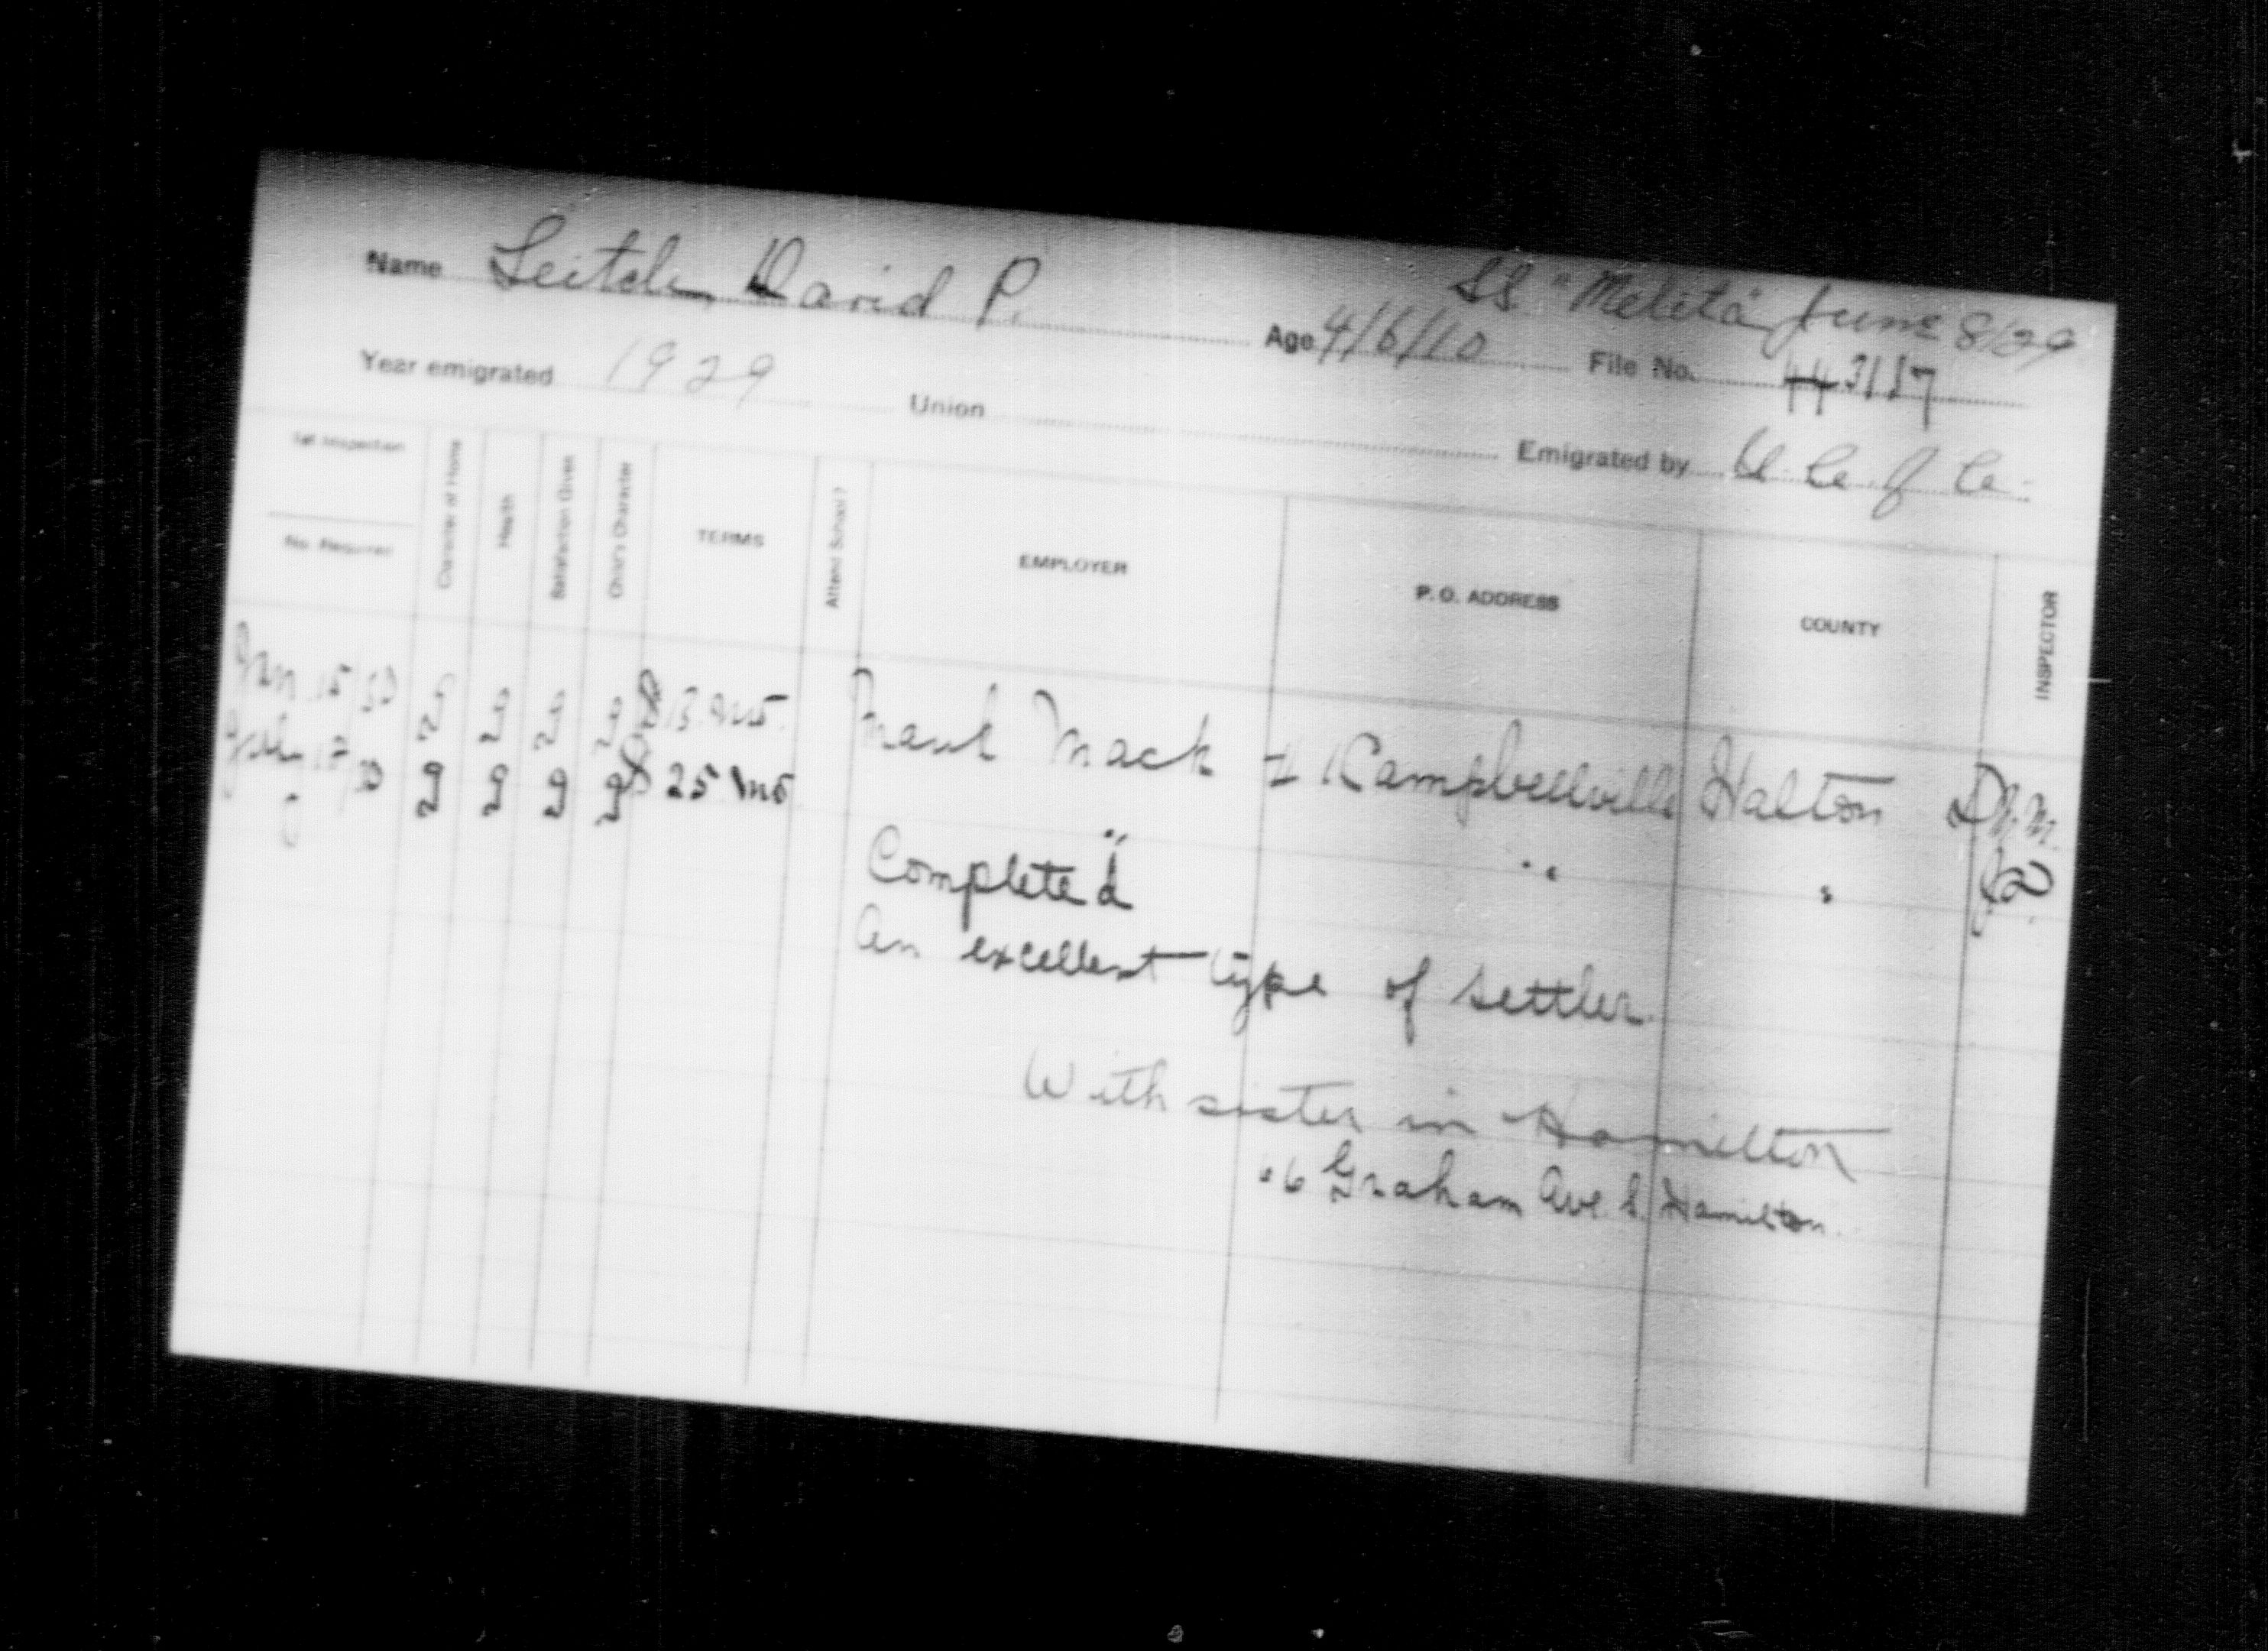 SS "Melita" June 8/29
Name Leitch, David P. Age 4/6/10 File No. 443117
Year emigrated 1929 Union Emigrated by U. C. of C.
1st Inspection
No. Required
Character of Home
Health
Satisfaction Given
Child's Character
TERMS
Attend School?
EMPLOYER
P. O. ADDRESS
COUNTY
INSPECTOR
Jan 15/30 $13 mo. Frank Mack Campbellville Halton
July 17/30 $25 mo " " "
Completed
An excellent type of settler.
With sister in Hamilton
Graham Ave. S. Hamilton.